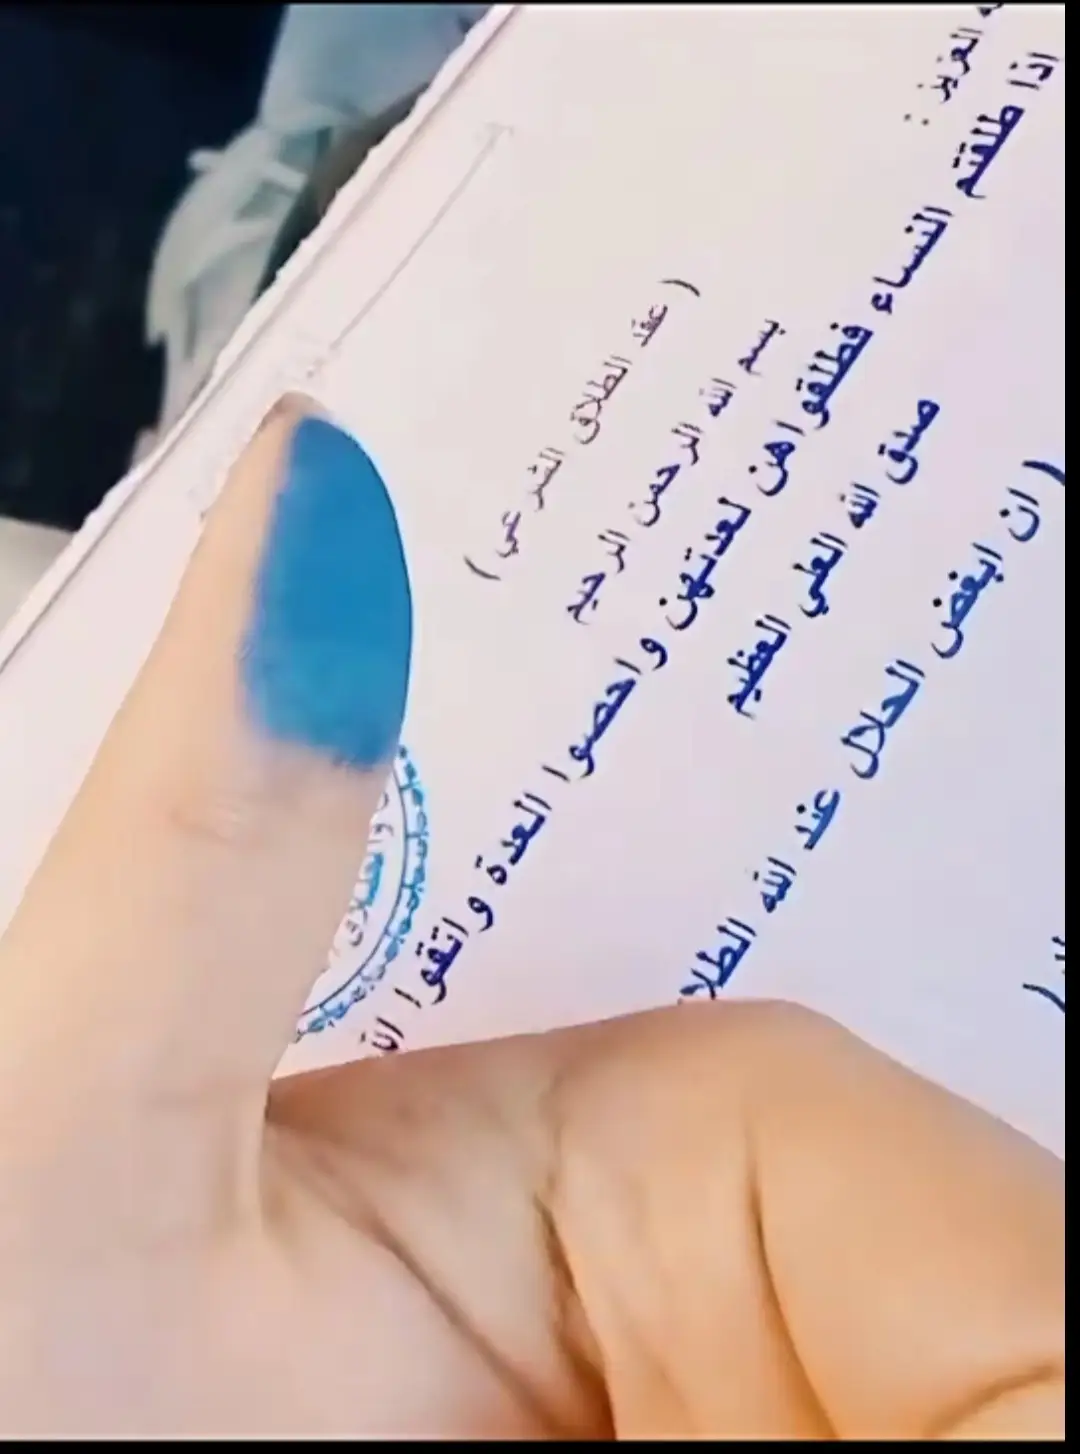 ( عقد الطلاق الشرعي )
بسم الله الرحمن الرحيم
العزيز :
اذا طلقتم النساء فطلقواهن لعدتهن واحصوا العدة واتقوا الله
صدق الله العلي العظيم
( ان ابغض الحلال عند الله الطلا